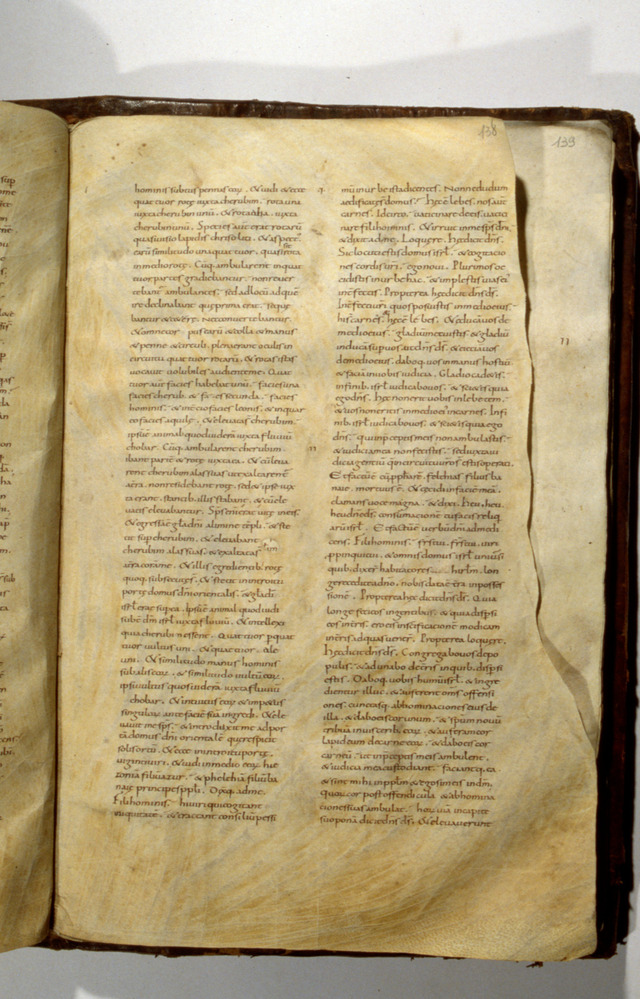 138
139
hominis subtus pennas eorum. & uidi & ecce
quattuor rote iuxta cherubim. rota una
iuxta cherubin unū. & rota alia iuxta
cherubin unū. Species aut erat rotarū
quasi uisio lapidis chrisoliti. & aspect'
earū similitudo una quattuor. quasi sit rota
in medio rotę. Cūq. ambularent in quat
tuor partes gradiebantur. non reuer
tebant' ambulantes. sed ad locū ad quē
ire declinabat que prima erat. sequę
bantur & cetere. nec conuertebantur.
& omne corpus earū & colla & manus
& penne & circuli. plena erant oculis in
circuitu quattuor rotarū. & rotas istas
uocauit uolubiles audiente me. Quat
tuor aut facies habebat unū. facies una
facies cherub. & facies secunda. facies
hominis. & in tercio facies leonis. & in quar
to facies aquile. & eleuata s cherubim.
ipsū ē animal quod uiderā iuxta fluuiū
chobar. Cūq. ambularent cherubim.
ibant pariter & rotę iuxta ea. & cū leua
rent cherubim alas suas ut exaltarent'
a terra. non residebant rotę. sed & ipse iux
ta erant. stantib. illis stabant. & cū ele
uatis eleuabantur. Sps enī uite erat in eis.
& egressa ē gloria dñi a limine tēpli. & ste
tit sup cherubim. & eleuantia
cherubim alas suas. & exaltata s
a terra corā me. & illis egredientib. rotę
quoq. subsecutę s. & stetit in introitu
portę domus dñi orientalis. & gloria di
isrł erat sup ea. Ipsū ē animal quod uidi
subt' dm isrł iuxta fluuiū. & intellexi
qua cherubim essent. Quattuor p quat
tuor uultus uni. & quattuor ale
uni. & similitudo manus hominis
sub alis eorum. & similitudo uultuū eorum.
ipsi uultus quos uiderā iuxta fluuiū
chobar. & intuitus eorum & impetus
singulorum ante faciē suā ingredi. & ele
uauit me sps. & introduxit me ad por
tā domus dñi orientalē que respicit
solis ortū. & ecce in introitu portę
uiginti uiri. & uidi in medio eorum hie
zoniā filiū azur. & pheltiā filiū ba
naię principes ppli. Dixitq. ad me.
Fili hominis. hii uiri qui cogitant
iniquitatē. & tractant consiliū pessi
mū in urbe ista dicentes. Nonne dudum
aedificatę s domus? hęc ē lebes. nos aut
carnes. Idcirco uaticinare de eis. uatici
nare fili hominis. & irruit in me sps dñi
& dixit ad me. Loquere. hęc dicit dñs.
Sic locuti estis domus isrł. & cogitatio
nes cordis uri. ego noui. Plurimos oc
cidistis in urbe hac. & implestis uias ei'
interfectis. Propterea hęc dicit dñs ds.
Interfecti uri quos posuistis in medio eius.
hi s carnes. hęc ē lebes. & educā uos de
medio eius. gladiū metuistis. & gladiū
inducā sup uos ait dñs ds. & eiciā uos
de medio eius. daboq. uos in manus hostiū.
& faciā in uobis iudicia. Gladio cadetis.
in finib. isrł iudicabo uos. & scietis quia
ego dñs. Hęc non erit uobis in lebetem.
& uos non eritis in medio ei' in carnes. In fi
nib. isrł iudicabo uos. & scietis quia ego
dñs. qui in preceptis meis non ambulastis.
& iudicia mea non fecistis. sed iuxta iu
dicia gentiū que in circuitu uro s estis operati.
Et factū ē cū ppharē. feltias filius ba
naie. mortuus ē. & cecidi in faciē meā.
clamans uoce magna. & dixi. Heu. heu.
heu dñe ds. consumationē tu facis reliq
arū isrł. Et factū ē uerbū dñi ad me di
cens. Fili hominis. frs tui. frs tui. uiri
ppinqui tui. & omnis domus isrł uniuersi
quib. dixer' habitatores hrłm. lon
ge recedite a dño. nobis data ē tra in posses
sionē. Propterea hęc dicit dñs ds. Quia
longe feci eos in gentibus. & quia dispsi
eos in terris. ero eis in scificationē modicam
in terris ad quas uenert. Propterea loquere.
Hęc dicit dñs ds. Congregabo uos de po
pulis. & adunabo de terris in quib. dispsi
estis. Daboq. uobis humū isrł. & ingre
dientur illuc. & auferent oms offensi
ones. cunctasq. abhominationes eius de
illa. & dabo eis cor unum. & spum nouū
tribuā in uiscerib. eorum. & auferam cor
lapideum de carne eorum. & dabo eis cor
carneū. ut in preceptis meis ambulent.
& iudicia mea custodiant. faciantq. ea.
& sint mihi in pplm & ego sim eis in dm.
quorum cor post offendicula & abhomina
tiones suas ambulat. horum uiā in capite
suo ponā dicit dñs ds. & eleuauerunt